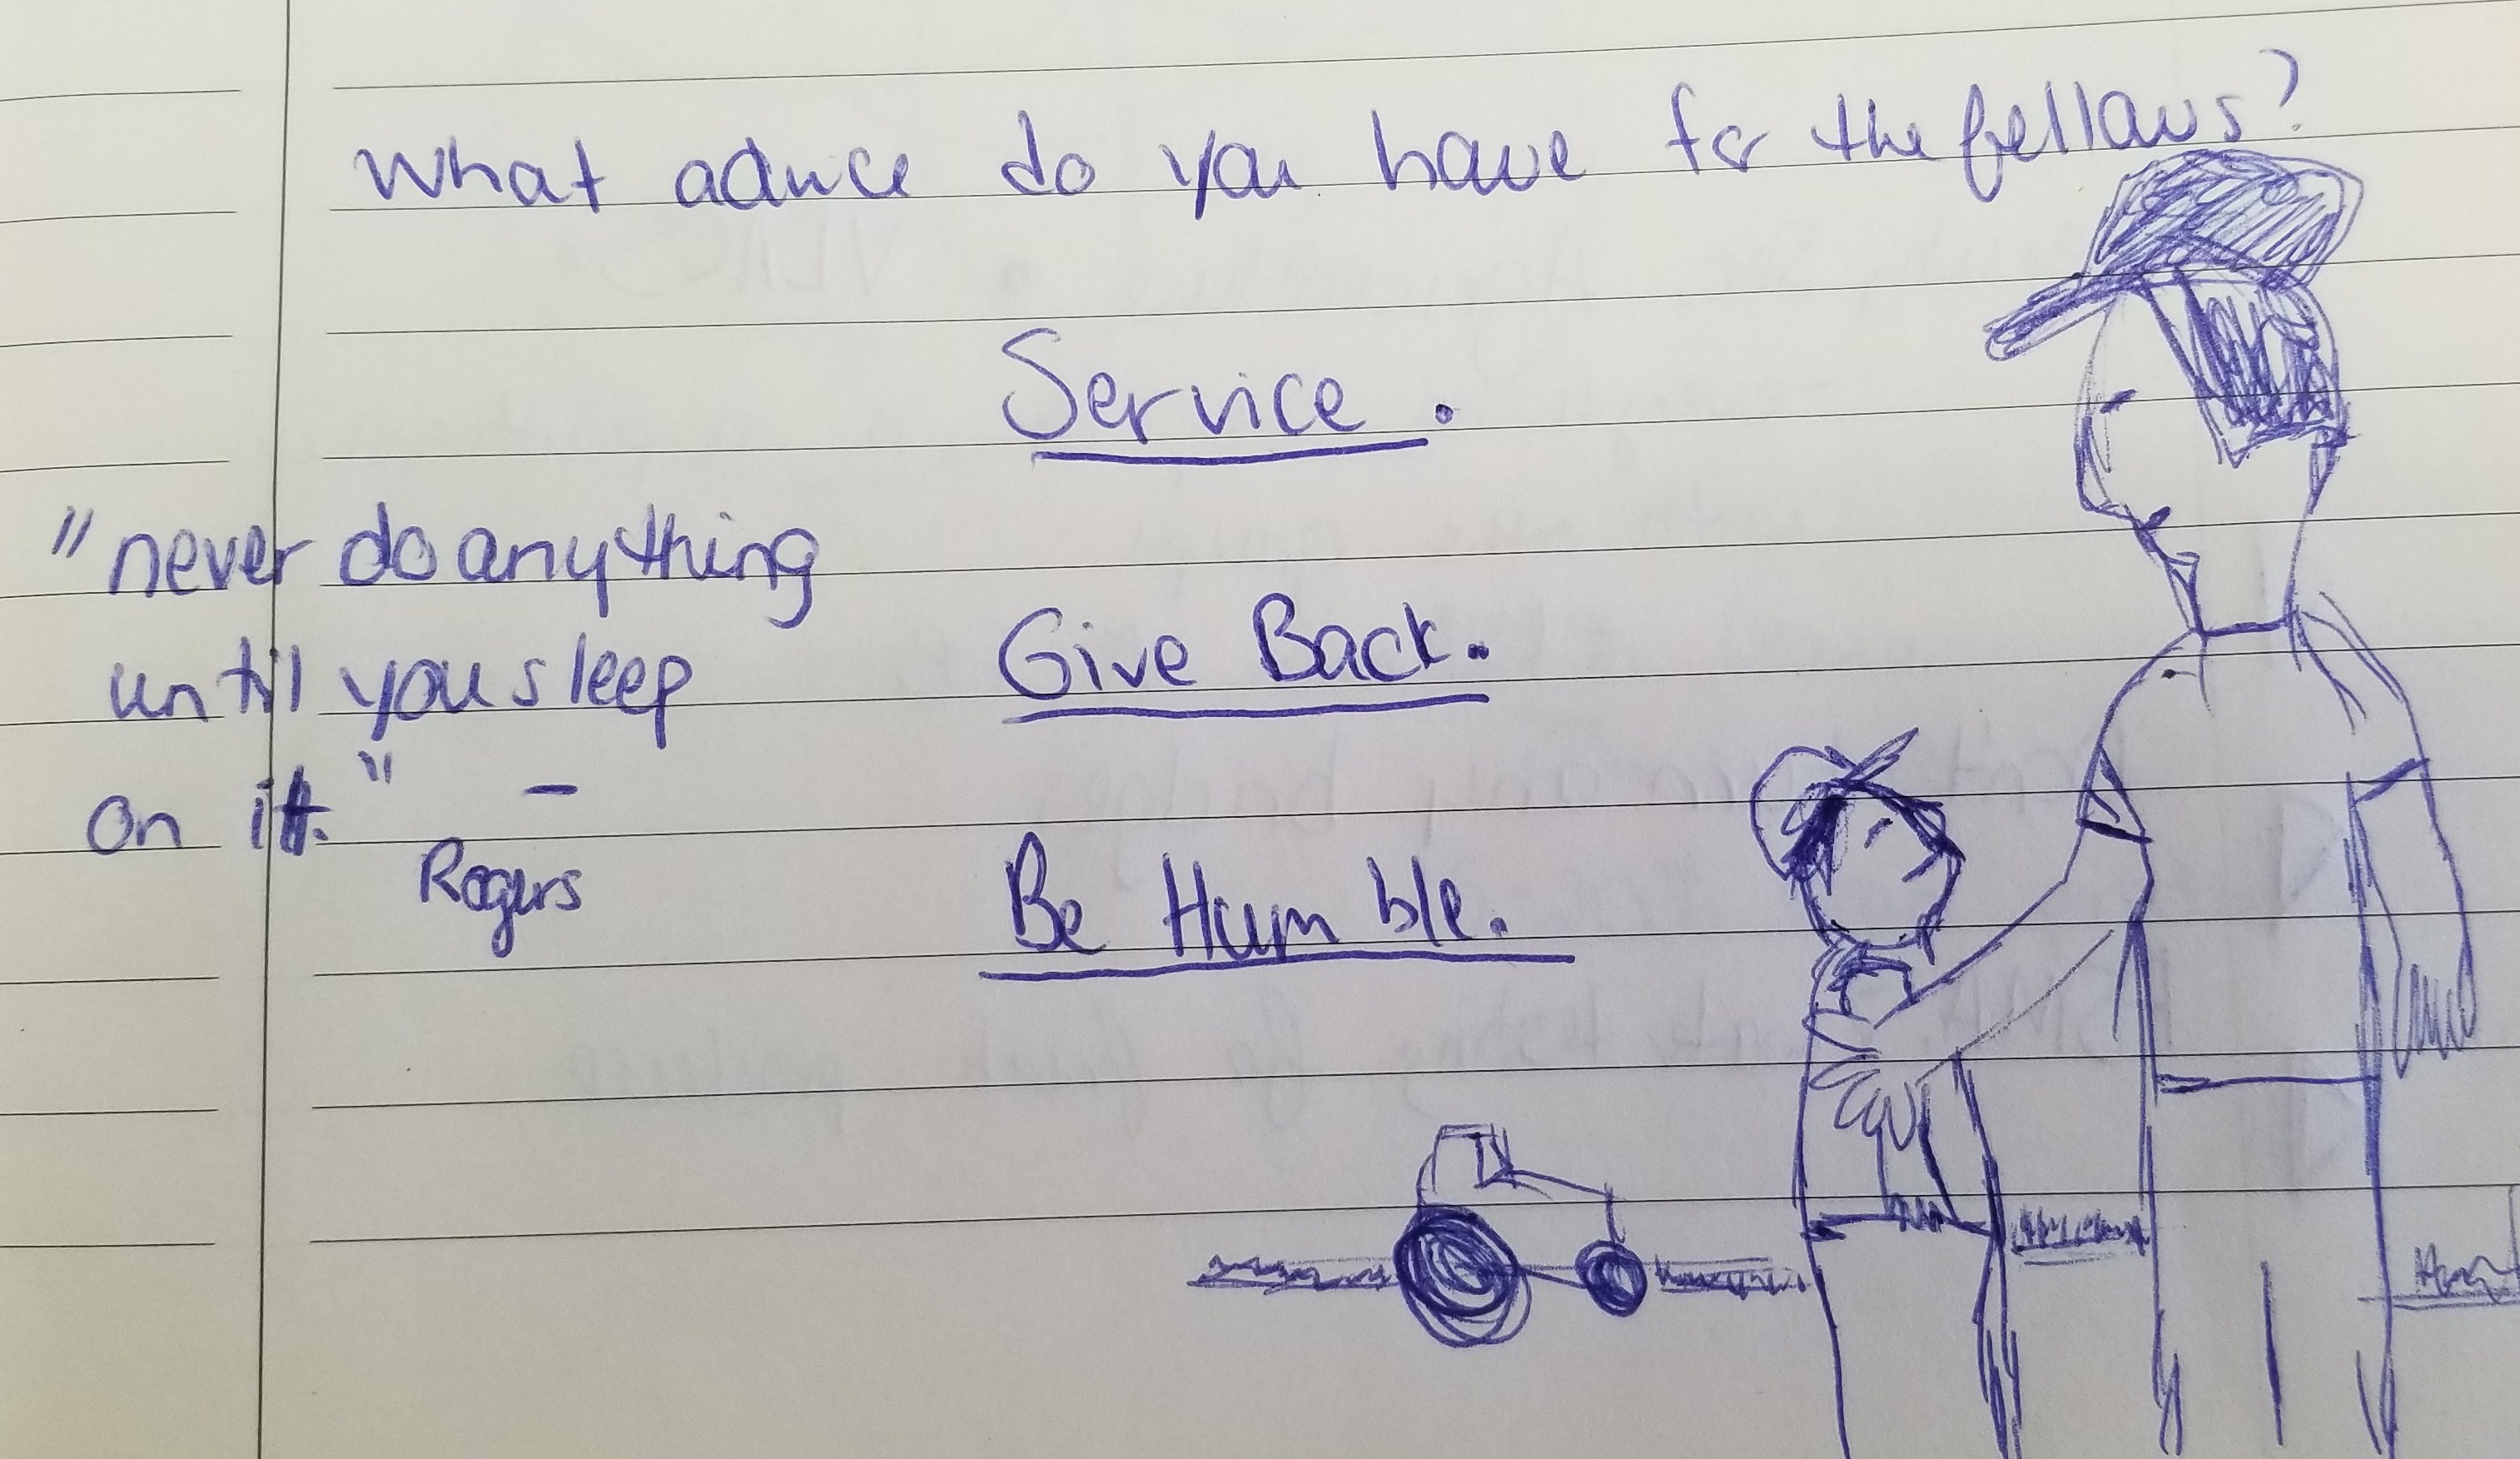 What advice do you have for the fellows?
Service.
"never do anything
until you sleep
on it." -
Rogers
Give Back.
Be Humble.